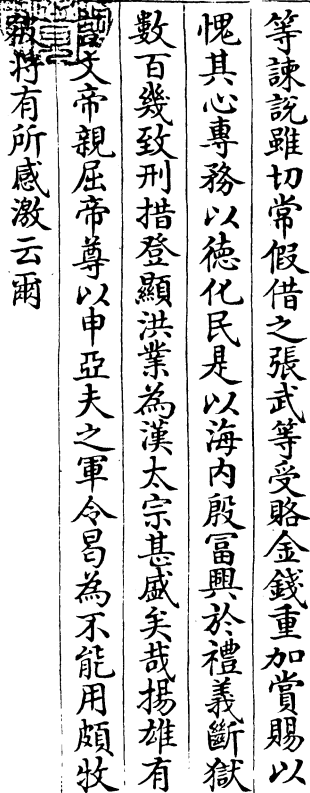 等諫說雖切常假借之張武等受賂金錢重加賞賜以
愧其心專務以德化民是以海内殷冨興於禮義斷獄
數百幾致刑措登顯洪業為漢太宗甚盛矣哉揚雄有
言文帝親屈帝尊以申亞夫之軍令曷為不能用頗牧
彼將有所感激云爾